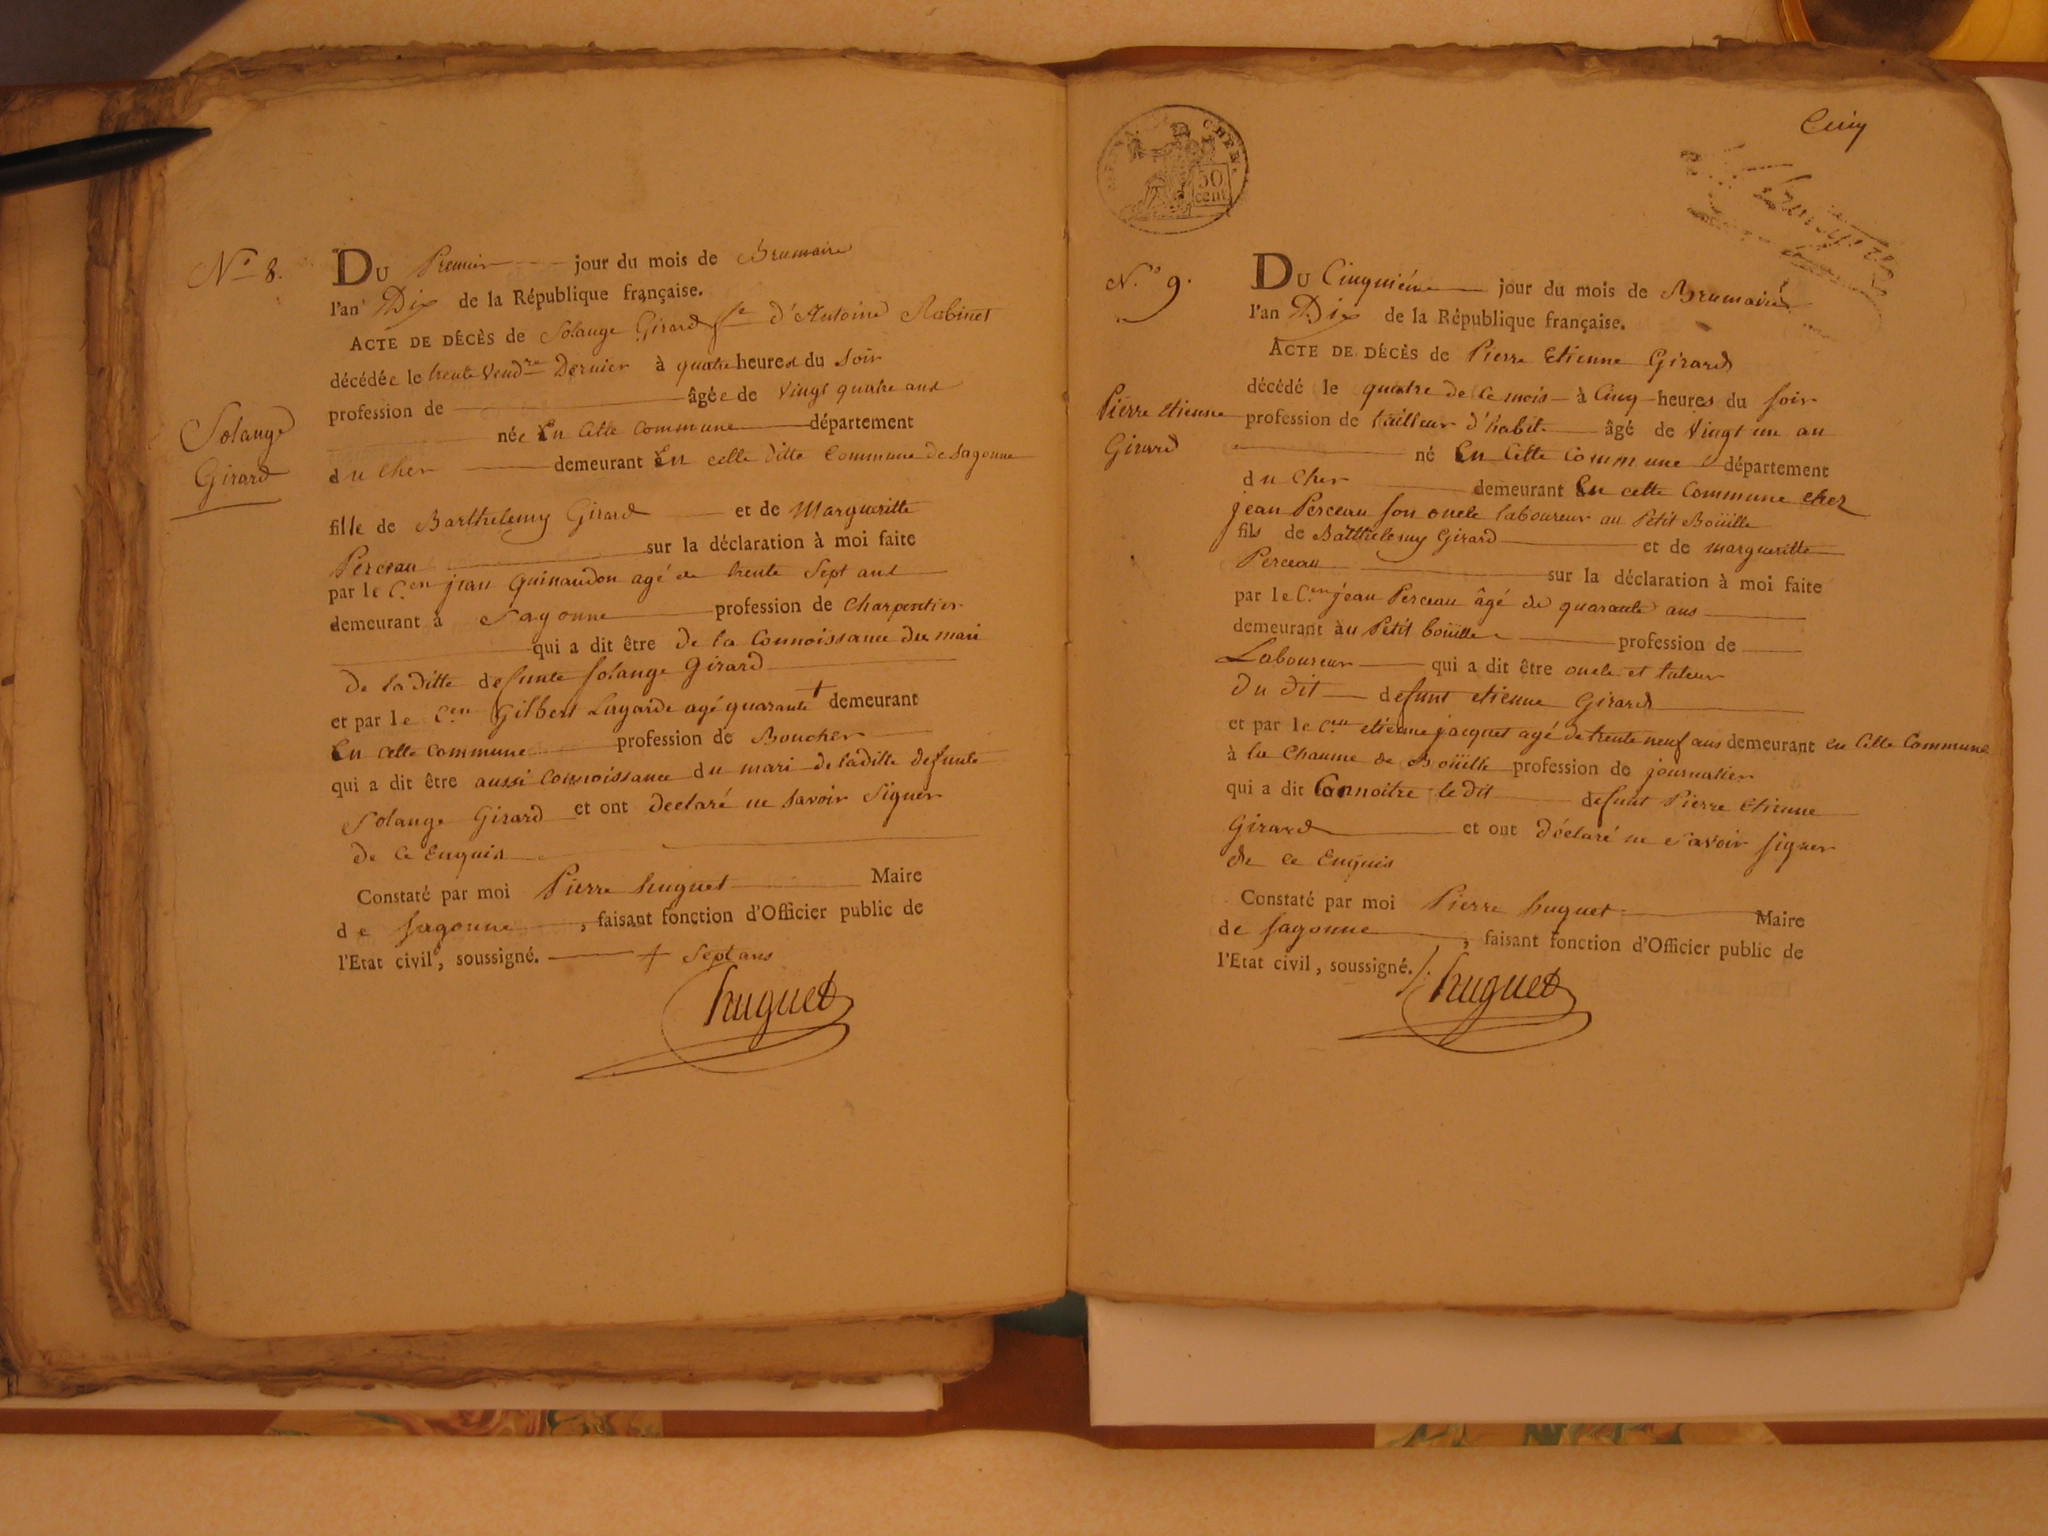 N.o 8.
Du Premier jour du mois de Brumaire
l'an Dix de la République française.
Acte de décès de Solange Girard fe d'Antoine Rabinet
décédée le trente Vendre Dernier à quatre heures du soir
profession de âgée de Vingt quatre ans
née En Cette Commune département
du Cher demeurant En cette ditte Commune de Sagonne
Solange
Girard
fille de Barthelemy Girard et de Margueritte
Perceau sur la déclaration à moi faite
par le C.en jean Guinaudon agé de trente Sept ans
demeurant à Sagonne profession de Charpentier
qui a dit être de la Connoissance du mari
de la ditte defunte Solange Girard
et par le C.en Gilbert Lagarde agé quarante + demeurant
En cette commune profession de Boucher
qui a dit être aussi connoissance du mari de laditte defunte
Solange Girard et ont declaré ne savoir Signer
de ce Enquis
Constaté par moi Pierre huguet Maire
de Sagonne, faisant fonction d'Officier public de
l'Etat civil, soussigné. + Sept ans
huguet
CHER.
50
cent
Cinq
N.o 9.
Du Cinquiéme jour du mois de Brumaire
l'an Dix de la République française.
Acte de décès de Pierre Etienne Girard
décédé le quatre de ce mois à Cinq heures du soir
Pierre etienne
Girard
profession de tailleur d'habit âgé de Vingt un an
né En Cette Commune département
du Cher demeurant En cette Commune chez
jean Perceau son oncle laboureur au Petit Boüille
fils de Batthelemy Girard et de margueritte
Perceau sur la déclaration à moi faite
par le C.en jean Perceau âgé de quarante ans
demeurant au Petit boüille profession de
Laboureur qui a dit être oncle et tuteur
du dit defunt etienne Girard
et par le C.en etienne jacquet agé de trente neuf ans demeurant en Cette Commune
à la Chaume de Boüille profession de journalier
qui a dit Connoitre le dit defunt Pierre Etienne
Girard et ont déclaré ne savoir signer
de ce Enquis
Constaté par moi Pierre huguet Maire
de Sagonne, faisant fonction d'Officier public de
l'Etat civil, soussigné.
huguet